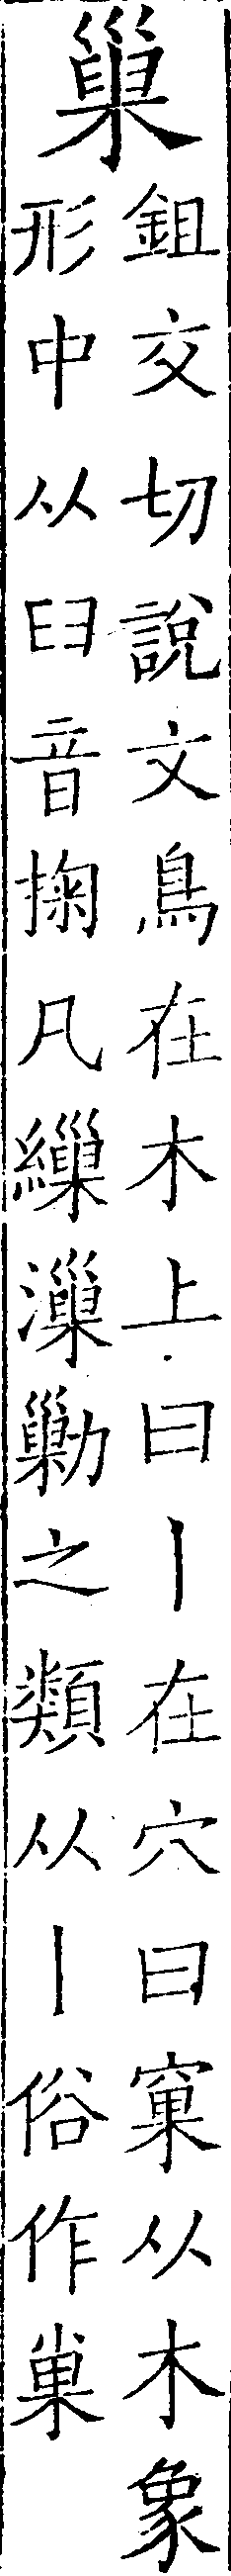 巢
鉏交切說文鳥在木上曰丨在穴曰窠从木象
形中从𦥑音掬凡繅漅勦之類从丨俗作巣